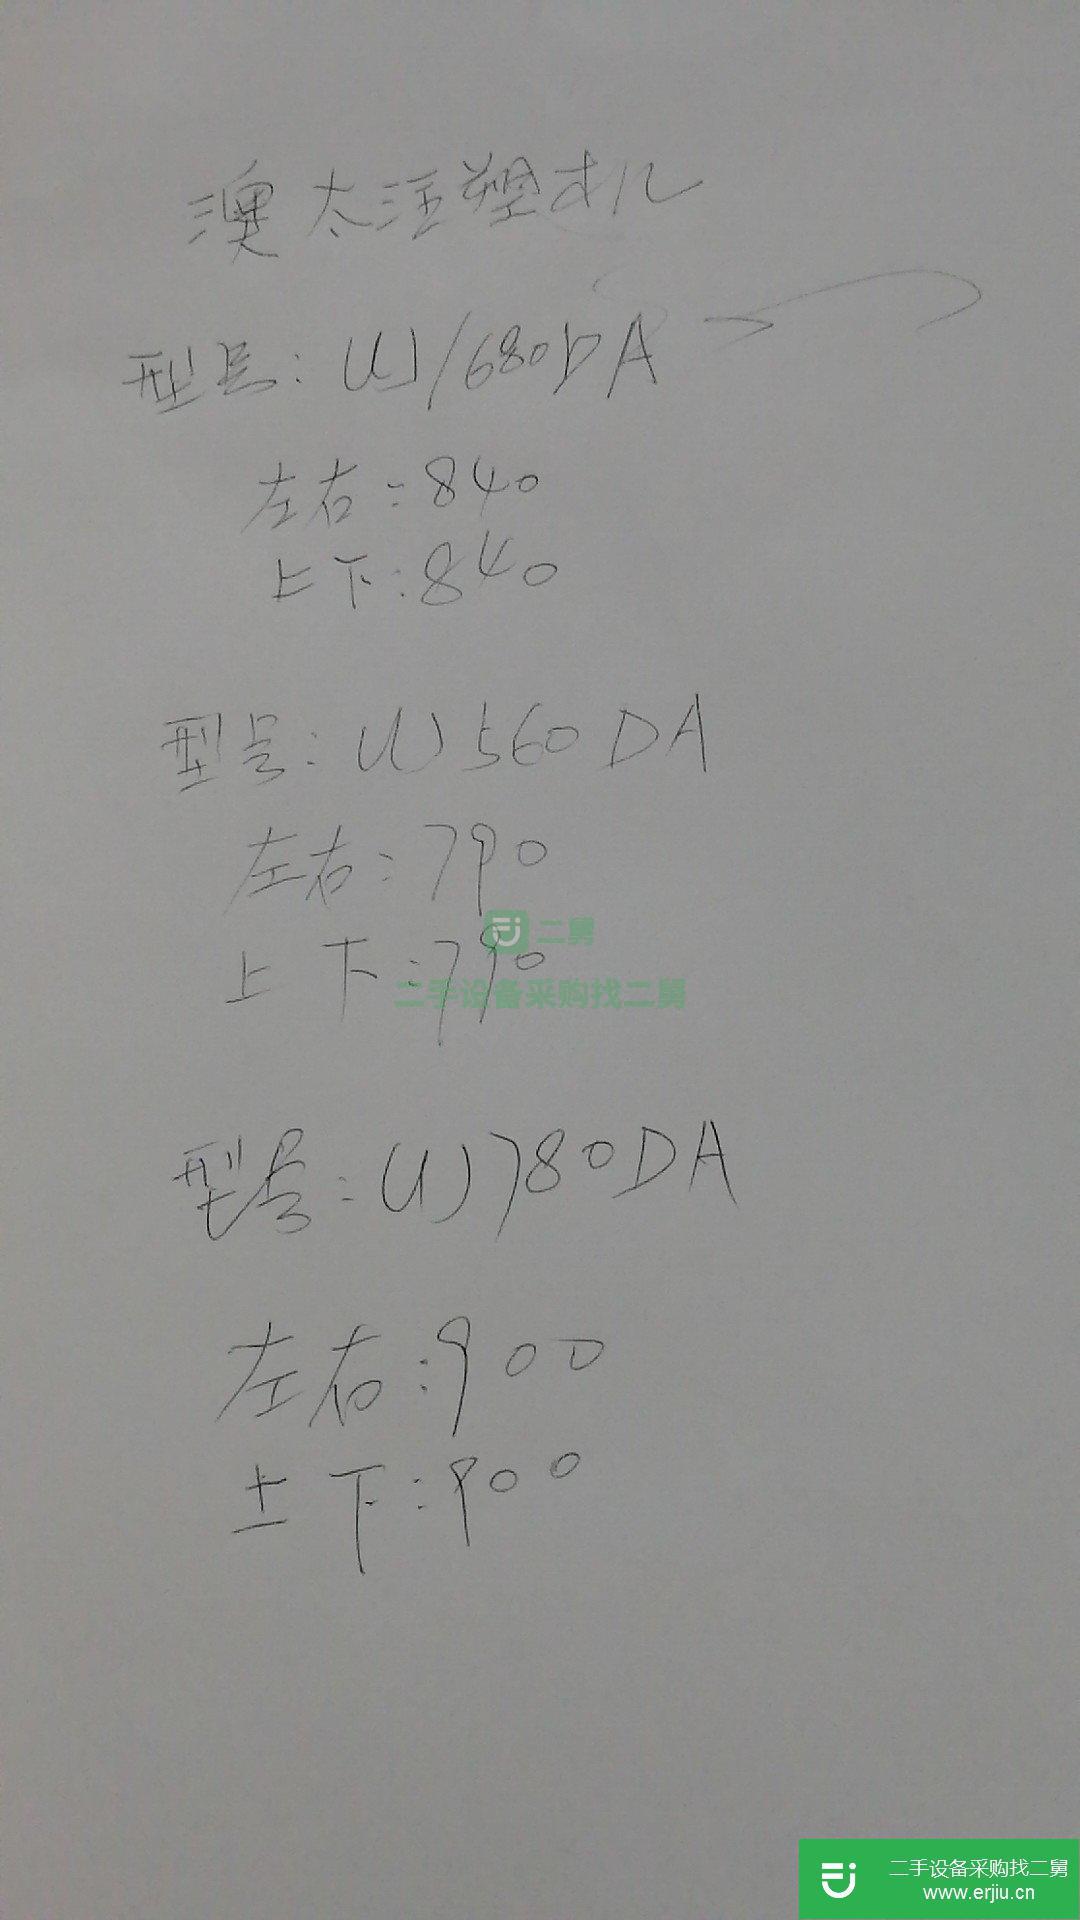 澳太注塑机
型号:UJ/680DA
左右:840
上下:840
型号:UJ560DA
左右:790
二舅
上下:790
二手设备采购找二舅
型号:UJ780DA
左右:900
上下:900
二手设备采购找二舅
www.erjiu.cn